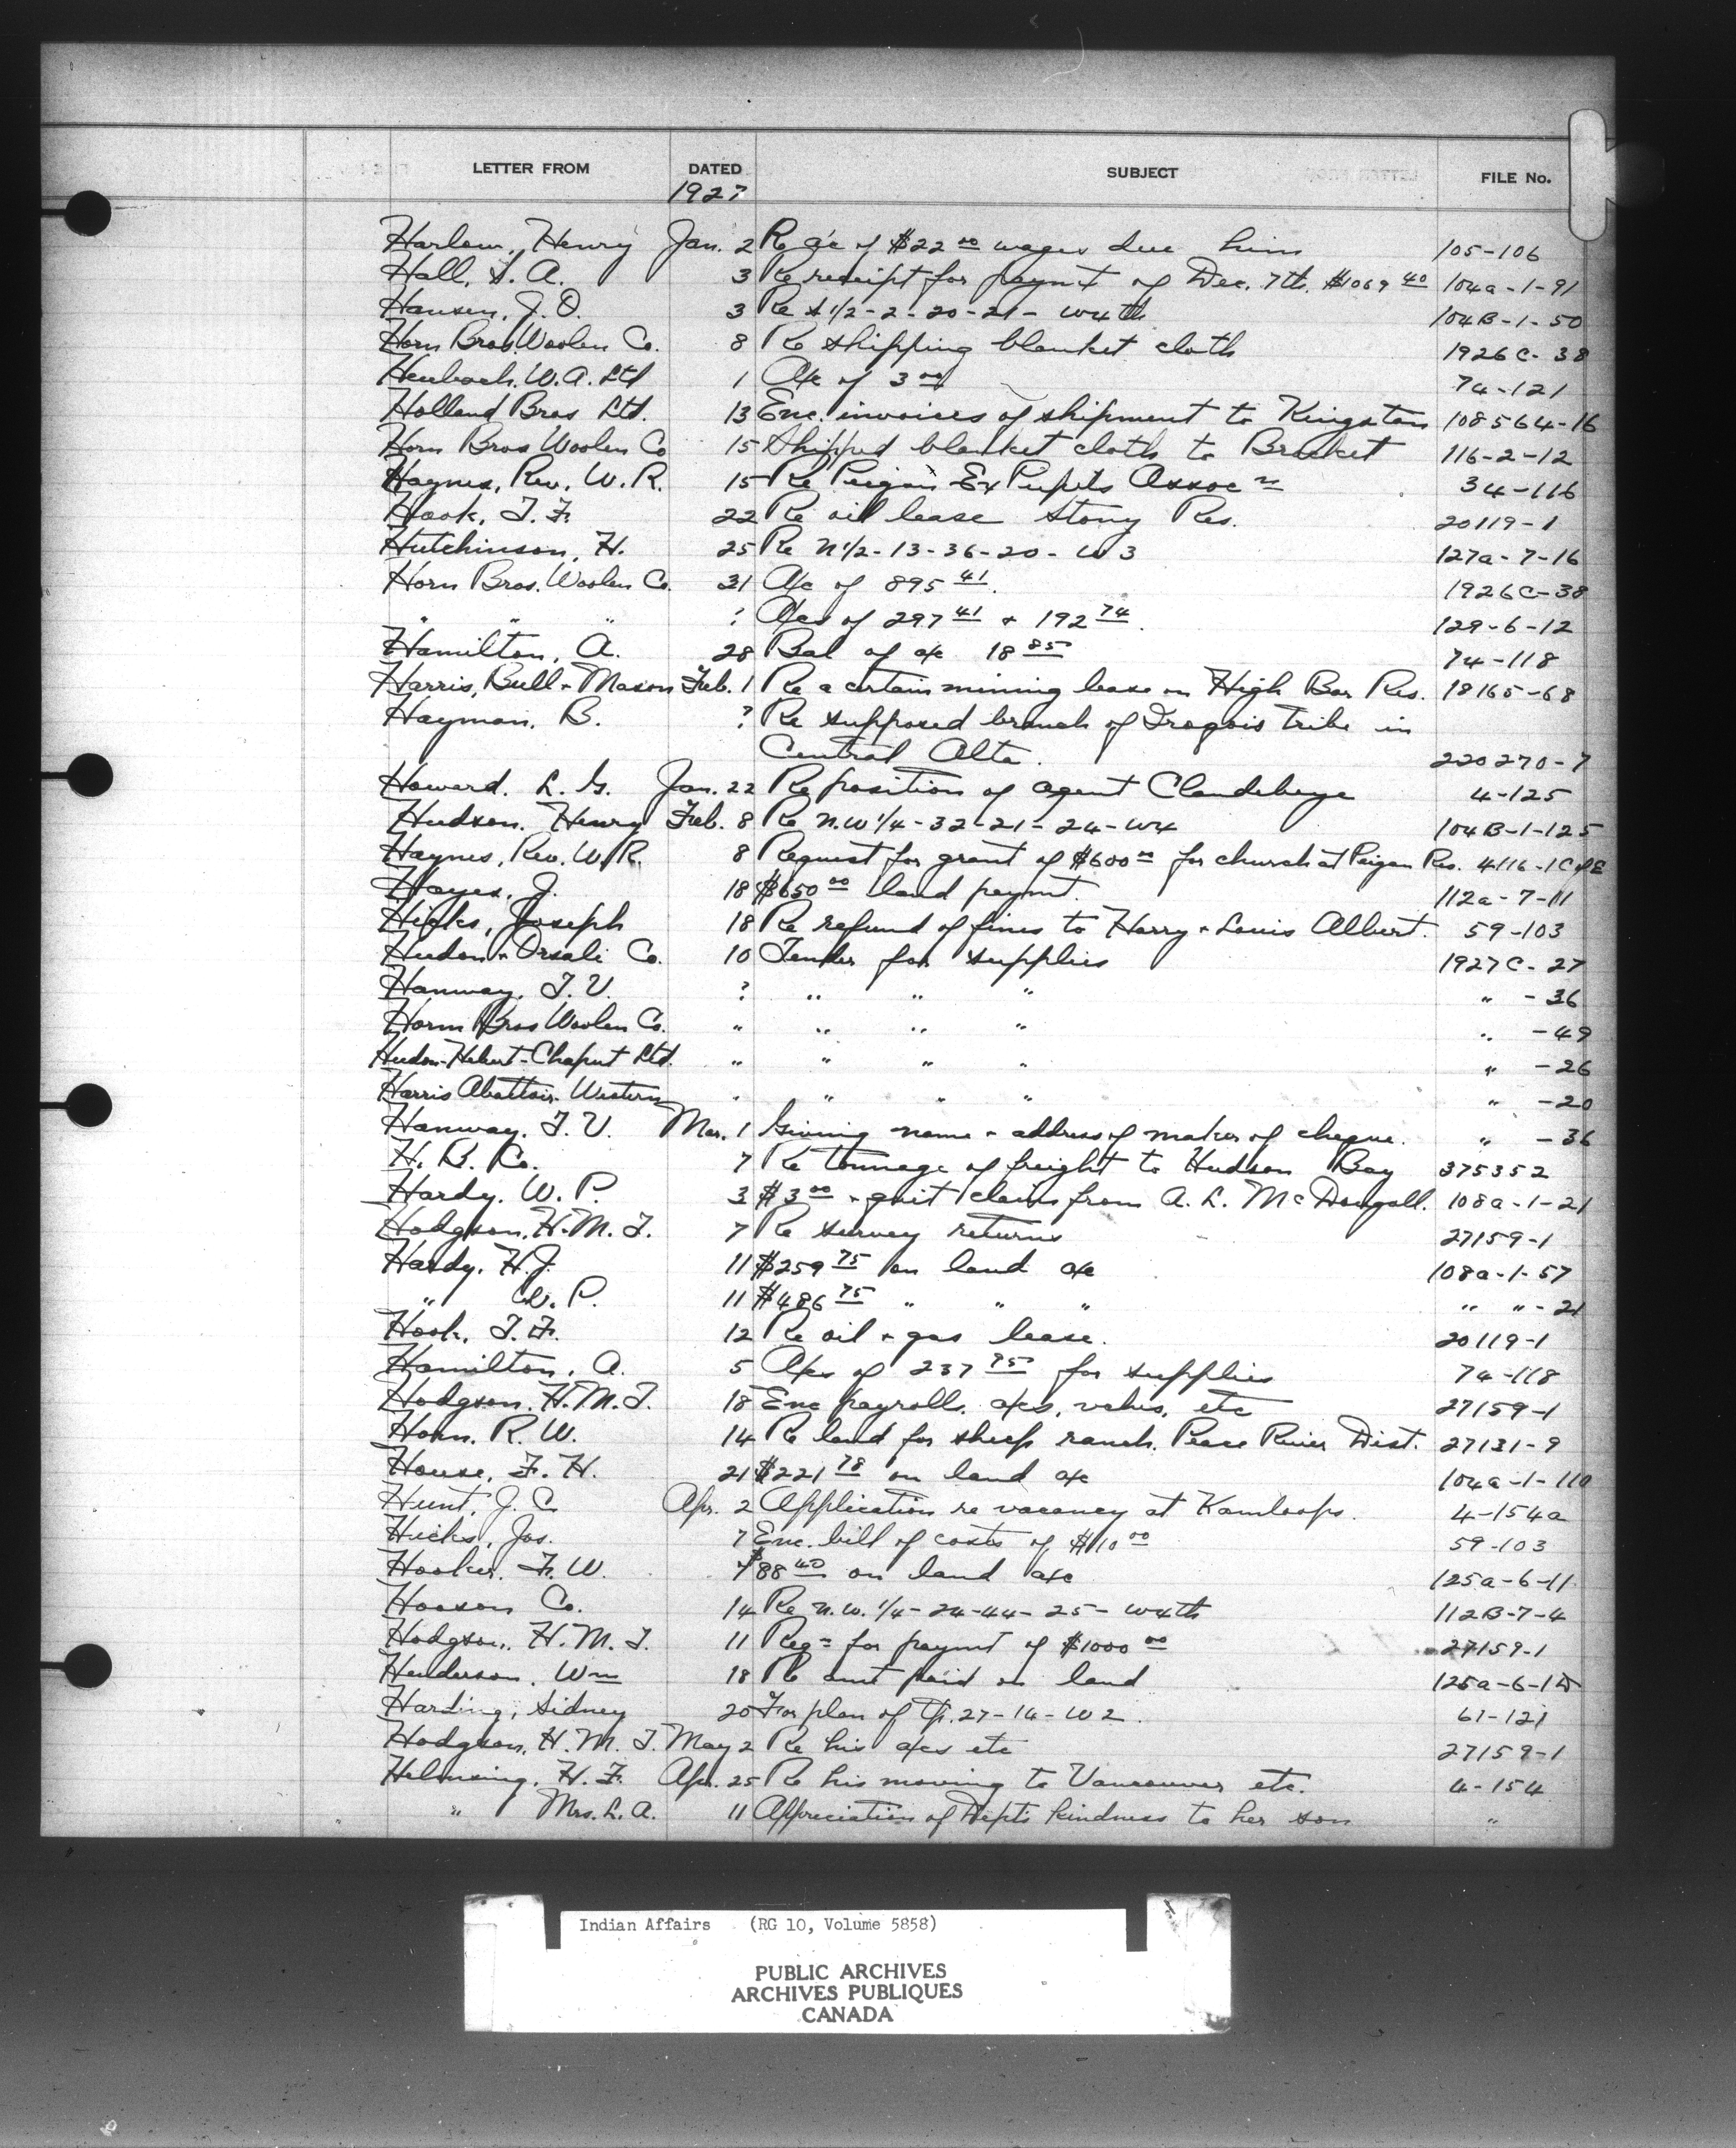 LETTER FROM DATED SUBJECT FILE No.
1927
Harlow, Henry Jan. 2 Re a/c of $22 00 wages due him 105-106
Hall, S. A. 3 Re receipt for paymt of Dec. 7th. $1069 40 104a-1-91
Hansen, J. O. 3 Re S 1/2-2-20-21- W4th 104B-1-50
Horn Bros. Woolen Co. 8 Re shipping blanket cloth 1926C-38
Heubach. W. A. Ltd 1 A/c of 3 00 74-121
Holland Bros Ltd. 13 Enc. invoices of shipment to Kingston 108564-16
Horn Bros Woolen Co 15 Shipped blanket cloth to Brocket 116-2-12
Haynes, Rev. W. R. 15 Re Peigan Ex Pupils Assoc n 34-116
Hook, T. F. 22 Re oil lease Stony Res. 20119-1
Hutchinson, H. 25 Re N 1/2-13-36-20- W 3 127a-7-16
Horn Bros. Woolen Co. 31 A/c of 895 41. 1926C-38
" " " ? A/cs of 297 41 + 192 74. 129-6-12
Hamilton, A. 28 Bal of a/c 18 85 74-118
Harris, Bull + Mason Feb. 1 Re a certain mining lease on High Bar Res. 18165-68
Hayman, B. ? Re supposed branch of Iroqois tribe in
Central Alta. 220270-7
Howard. L. G. Jan. 22 Re position of agent Clandeboye 4-125
Hudson. Henry Feb. 8 Re N.W 1/4-32-21-24-W4 104B-1-125
Haynes, Rev. W. R. 8 Request for grant of $600 00 for church at Peigan Res. 4116-1C of E
Hayes, J. 18 $650 00 land paymt. 112a-7-11
Hicks, Joseph 18 Re refund of fines to Harry + Louis Albert. 59-103
Hudon + Orsali Co. 10 Tender for supplies 1927C-27
Hanway, T. V. ? " " " " -36
Horn Bros Woolen Co. " " " " " -49
Hudon-Hebert-Chaput Ltd. " " " " " -26
Harris Abattoir Western " " " " " -20
Hanway, T. V. Mar. 1 Giving name + address of maker of cheque. " -36
H. B. Co. 7 Re tonnage of freight to Hudson Bay 375352
Hardy. W. P. 3 $3 00 + quit claim from A. L. McDougall. 108a-1-21
Hodgson, H. M. T. 7 Re survey returns 27159-1
Hardy, H. J. 11 $259 75 on land a/c 108a-1-57
" W. P. 11 $486 75 " " " " " -21
Hook, T. F. 12 Re oil + gas lease. 20119-1
Hamilton, A. 5 A/cs of 237 95 for supplies 74-118
Hodgson, H. M. T. 18 Enc payrolls, a/cs, vchrs, etc 27159-1
Horn. R. W. 14 Re land for sheep ranch. Peace River Dist. 27131-9
House, F. H. 21 $221 78 on land a/c 104a-1-110
Hunt, J. C. Apr. 2 Application re vacancy at Kamloops. 4-154a
Hicks, Jos. 7 Enc. bill of costs of $10 00 59-103
Hooker, F. W. 7 $88 40 on land a/c 125a-6-11
Hooson Co. 14 Re N.W. 1/4-24-44-25- W4th 112B-7-4
Hodgson, H. M. T. 11 Reqn for paymt of $1000 00 27159-1
Henderson, Wm 18 Re amt paid on land
Harding, Sidney 20 For plan of Tp. 27-14-W 2. 61-121
Hodgson, H. M. T. May 2 Re his a/cs etc 27159-1
Helmsing, H. F. Apr. 25 Re his moving to Vancouver etc. 4-154
" Mrs. L. A. 11 Appreciation of Dept's kindness to her son "
Indian Affairs (RG 10, Volume 5858)
PUBLIC ARCHIVES
ARCHIVES PUBLIQUES
CANADA